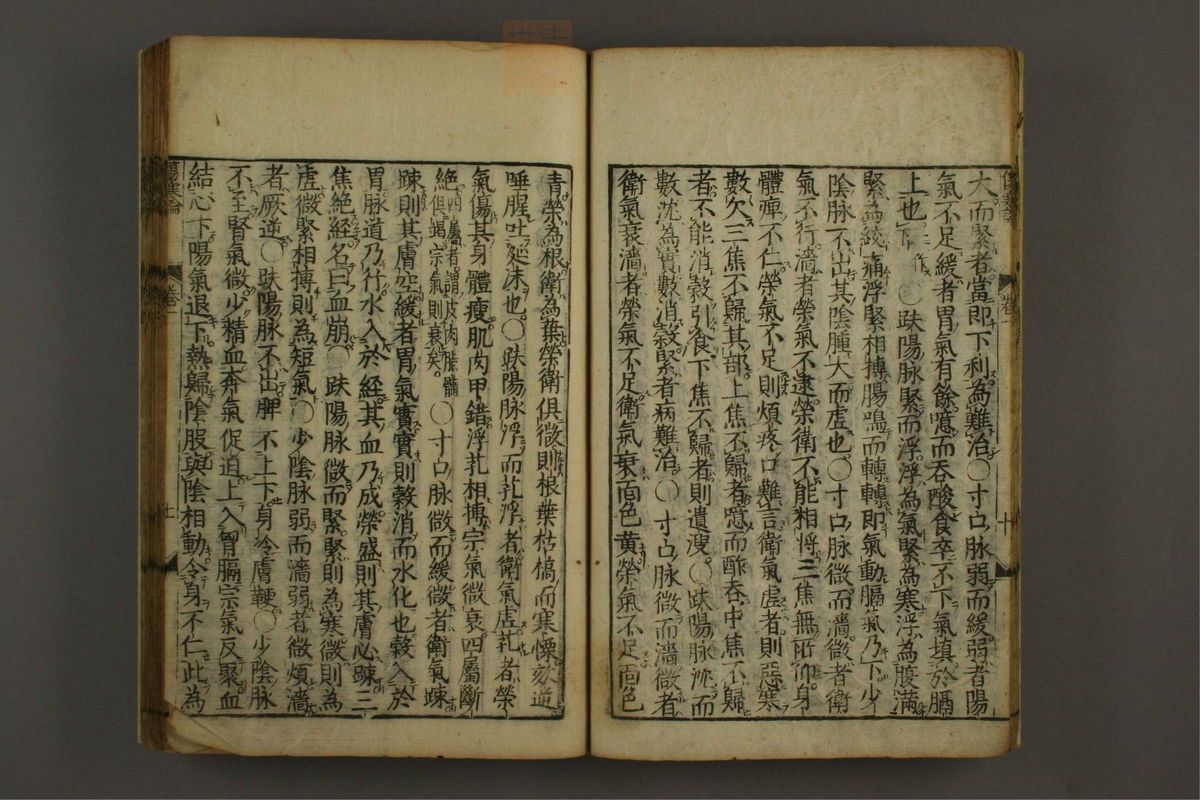 大而緊者當即下利為難治〇寸口脉弱而緩弱者陽
氣不足緩者胃氣有餘噫而吞酸食卒不下氣填於膈
上也〇趺陽脉緊而浮浮為氣緊為寒浮為腹滿
緊為絞痛浮緊相搏腸鳴而轉轉即氣動膈氣乃下少
陰脉不出其陰腫大而虛也〇寸口脉微而濇微者衛
氣不行濇者榮氣不逮榮衛不能相將三焦無所仰身
體痺不仁榮氣不足則煩疼口難言衛氣虛者則惡寒
數欠三焦不歸其部上焦不歸者噫而酢吞中焦不歸
者不能消穀引食下焦不歸者則遺溲〇趺陽脉沈而
數沈為實數消穀緊者病難治〇寸口脉微而濇微者
衛氣衰濇者榮氣不足衛氣衰面色黄榮氣不足面色
傷寒論 卷一 十
青榮為根衛為葉榮衛俱微則根葉枯槁而寒慄欬逆
唾腥吐涎沫也〇趺陽脉浮而芤浮者衛氣虛芤者榮
氣傷其身體瘦肌肉甲錯浮芤相搏宗氣微衰四屬斷
絶四屬者謂皮肉脂髓俱竭宗氣則衰矣〇寸口脉微而緩微者衛氣踈
踈則其膚空緩者胃氣實實則穀消而水化也穀入於
胃脉道乃行水入於經其血乃成榮盛則其膚必踈三
焦絶經名曰血崩〇趺陽脉微而緊緊則為寒微則為
虛微緊相搏則為短氣〇少陰脉弱而濇弱者微煩濇
者厥逆〇趺陽脉不出脾不上下身冷膚鞕〇少陰脉
不至腎氣微少精血奔氣促迫上入胷膈宗氣反聚血
結心下陽氣退下熱歸陰股與陰相動令身不仁此為
傷寒論 卷一